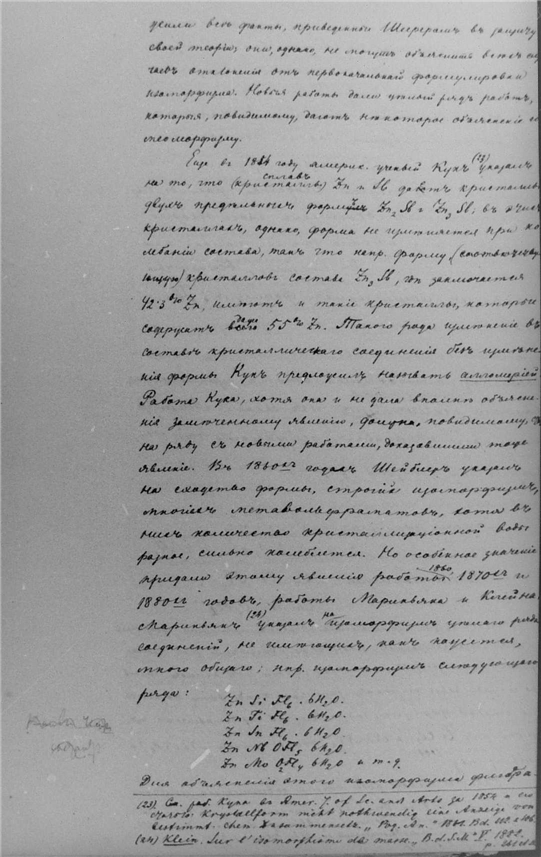 всѣ факты, приведенные Шереромъ въ защиту
своей теоріи; они, однако, не могутъ объяснить всѣхъ слу
чаевъ отклоненія отъ первоначальной формулировки
изоморфизма. Новыя работы дали цѣлый рядъ работъ,
которыя, повидимому, даютъ нѣкоторое объясненіе
изоморфизму.
Еще въ году америк. ученый Кукъ (23) указалъ
на то, что (кристаллы) сплавъ Zn и Sb даютъ кристаллы
двухъ предѣльныхъ формъ Zn2 Sb и Zn3 Sb; въ
кристаллахъ, однако, форма не измѣняется при ко
лебаніи состава, такъ что напр. форму (соотвѣтству
ющую) кристалловъ состава Zn3 Sb, гдѣ заключается
42·3% Zn, имѣютъ и такіе кристаллы, которые
содержатъ даже 55% Zn. Такого рода измѣненіе въ
составѣ кристаллическаго соединенія безъ измѣне
нія формы Кукъ предложилъ называть алломеріей
Работа Кука, хотя она и не дала вполнѣ объясне
нія замѣченному явленію, должна, повидимому,
на ряду съ новыми работами, доказавшими тоже
явленіе. Въ 1860хъ годахъ Шейблеръ указалъ
на сходство формы, строгій изоморфизмъ,
многихъ метавольфраматовъ, хотя въ
нихъ количество кристаллизаціонной воды
разное, сильно колеблется. Но особенное значеніе
придали этому явленію работы 1860 1870хъ и
1880хъ годовъ, работы Мариньяка и Клейна.
Мариньякъ (24) указалъ на изоморфизмъ цѣлаго ряда
соединеній, не имѣющихъ, какъ кажется,
много общаго; нпр. изоморфизмъ слѣдующаго
ряда:
Zn Si Fl6 . 6H2O.
Zn Ti Fl6 . 6H2O.
Zn Sn Fl6 . 6H2O.
Zn Nb OFl5 6H2O.
Zn Mo O2Fl4 6H2O и т.д.
Для объясненія этого изоморфизма
(23) См. раб. Кука въ Amer. J. of Sc. and Arts за 1854 и его
Krystallform nicht nothwendig eine Anzeige von
bestimmt. chem. Zusammensetz. „Pog. An."
(24) Klein. Sur l'isomorphisme de mass. „B. d. S. M." V. 1882.